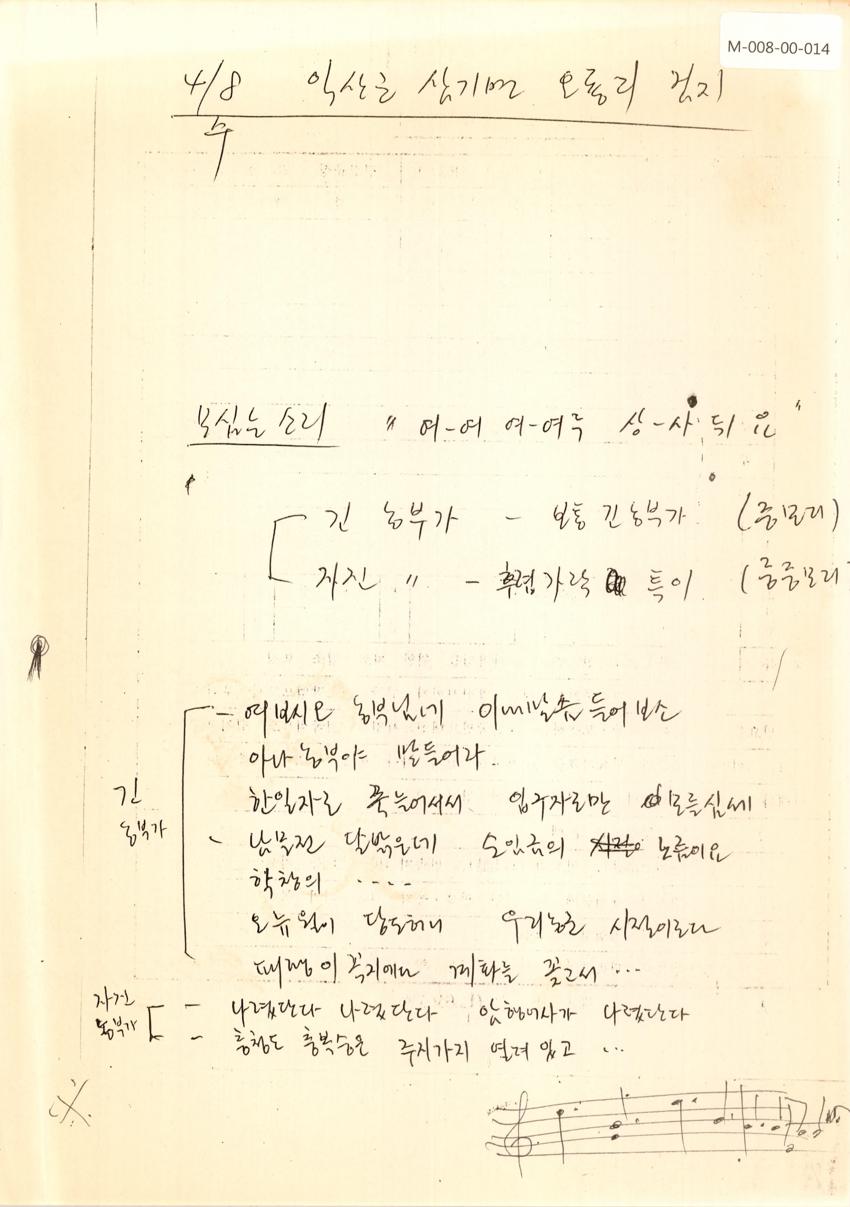 M-008-00-014
4/8 익산군 삼기면 오룡리 검지
수
모심는 소리 " 여-여 여-여루 상-사 뒤 요 "
긴 농부가 - 보통 긴 농부가 (중모리)
자진 〃 - 후렴가락 특이 (중중모리
- 여보시오 농부님네 이내말좀 들어보소
아나 농부야 말들어라.
긴
농부가
한일자로 쭉 늘어서서 입구자로만 모를심세
- 남문전 달밝은데 순임금의 노름이요
학창의 ----
오뉴월이 당도허니 우리농군 시절이로다
패랭이 꼭지에다 계화를 꽂고서 ...
자진
농부가
- 나렸단다 나렸단다 암행어사가 나렸단다
- 충청도 충복숭은 주지가지 열려 있고 ...